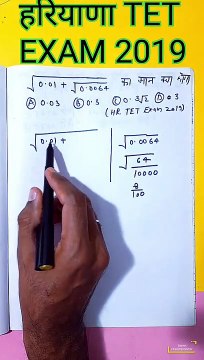 हरियाणा TET
EXAM 2019
√0.01 + √0.0064 का मान क्या होगा
Ⓐ 0.03 Ⓑ 0.3 Ⓒ 0.3√2 Ⓓ 0.3
(HR TET Exam 2019)
√0.01 +
√0.0064
√64/10000
8/100